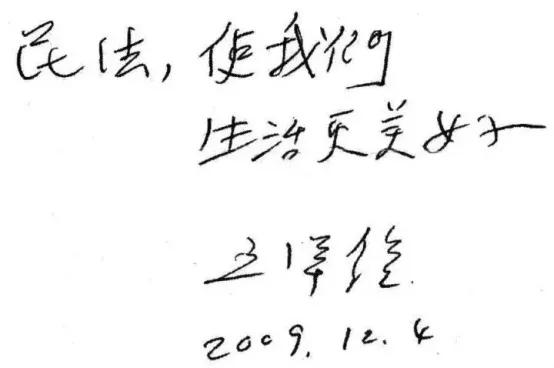 民法,使我们
生活更美好
2009.12.4